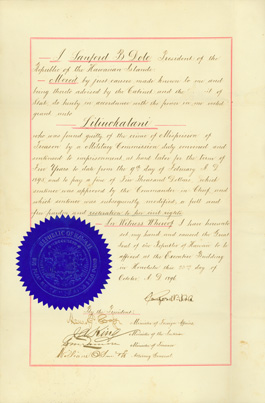 I Sanford B Dole President of the
Republic of the Hawaiian Islands
Moved by just causes made known to me and
being thereto advised by the Cabinet and the of
State, do hereby in accordance with the power in me vested
grant unto
Liliuokalani
who was found guilty of the crime of Misprision of
Treason by a Military Commission duly convened and
sentenced to imprisonment at hard labor for the term of
Five Years to date from the day of February A D
1895 and to pay a fine of Five Thousand Dollars which
sentence was approved by the Commander in Chief, and
which sentence was subsequently modified, a full and
free pardon and restoration to her civil rights
In Witness Whereof I have hereunto
set my hand, and caused the Great
Seal of the Republic of Hawaii to be
affixed at the Executive Building
in Honolulu this day of
October A.D. 1896
Sanford B. Dole
By the President:
Minister of Foreign Affairs
J A King Minister of the Interior
Minister of Finance
William O Smith Attorney General
REPUBLIC OF HAWAII